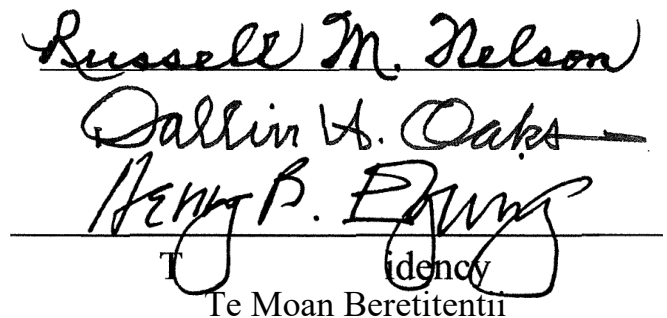 Russell M. Nelson
Dallin H. Oaks
Henry B. Eyring
T idency
Te Moan Beretitentii